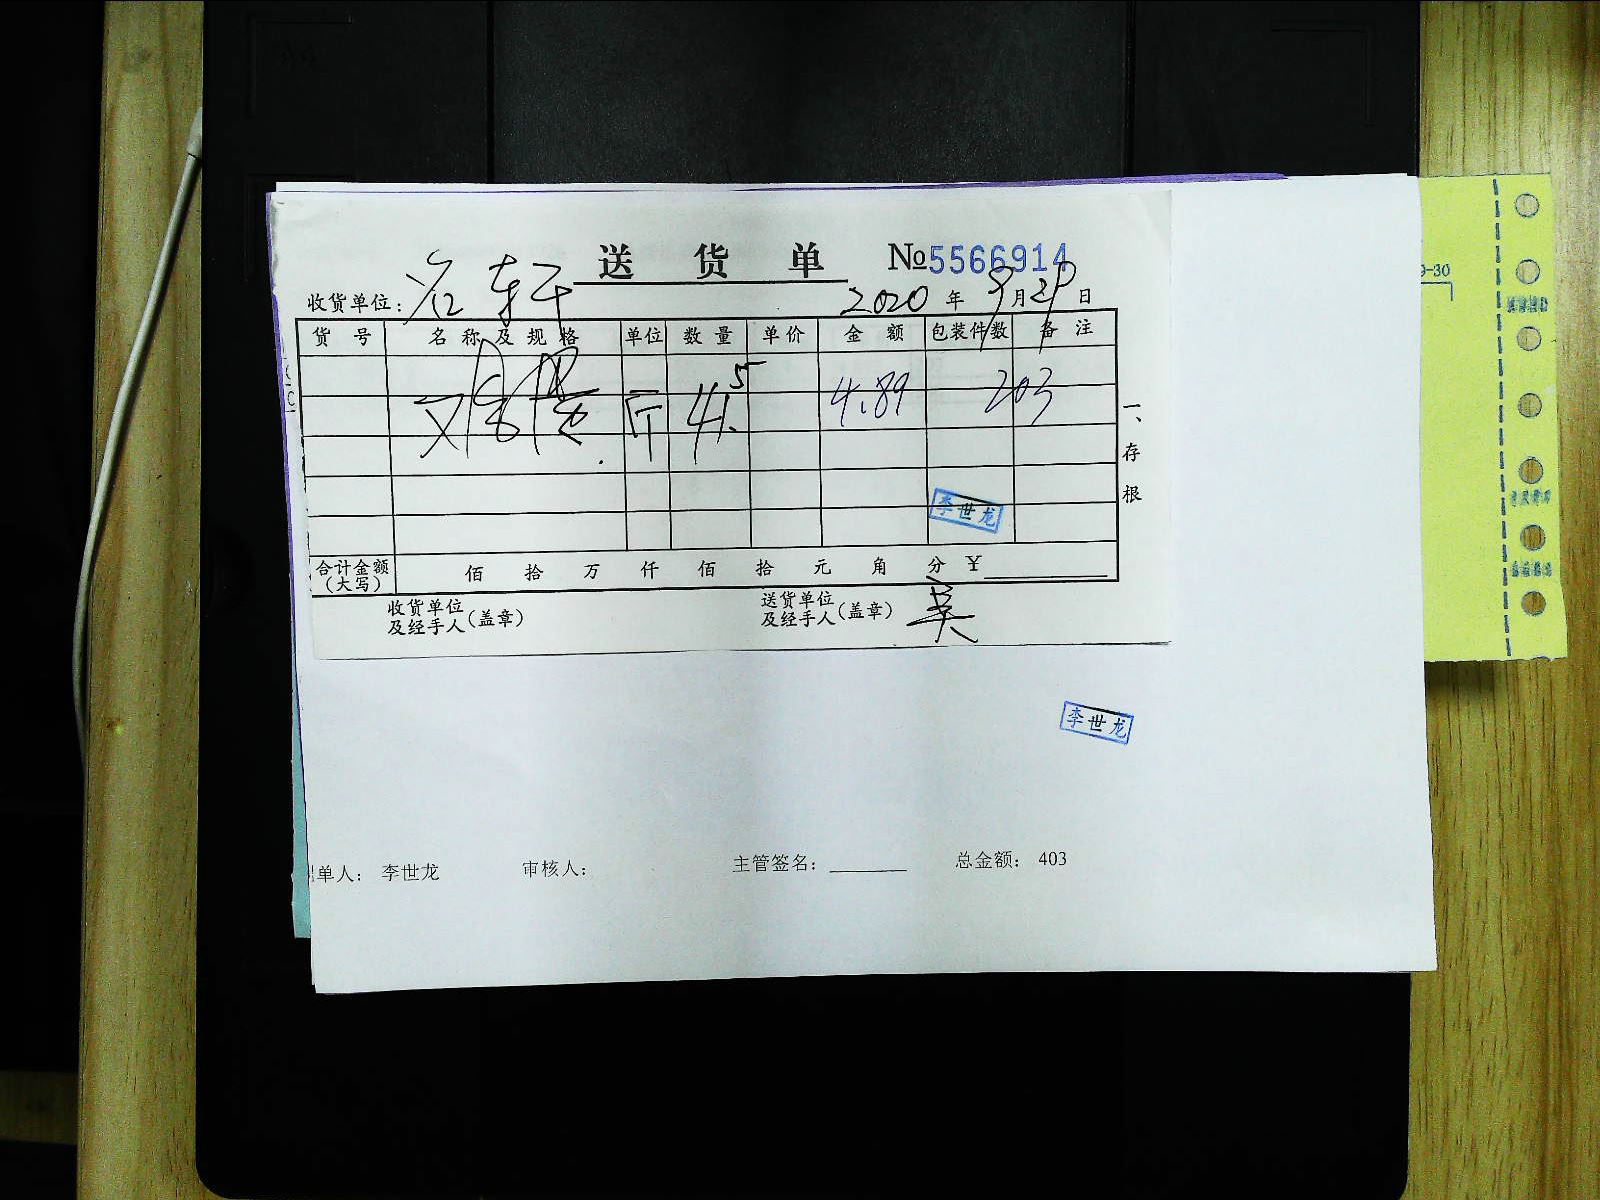 送 货 单 №5566914
收货单位: 2020 年 9 月 29 日
货 号 名 称 及 规 格 单位 数 量 单 价 金 额 包装件数 备 注
斤 41.5 4.89 203
一、存根
李世龙
合计金额(大写) 佰 拾 万 仟 佰 拾 元 角 分 ¥
收货单位及经手人(盖章) 送货单位及经手人(盖章) 吴
李世龙
单人: 李世龙 审核人: 主管签名: 总金额: 403
9-30